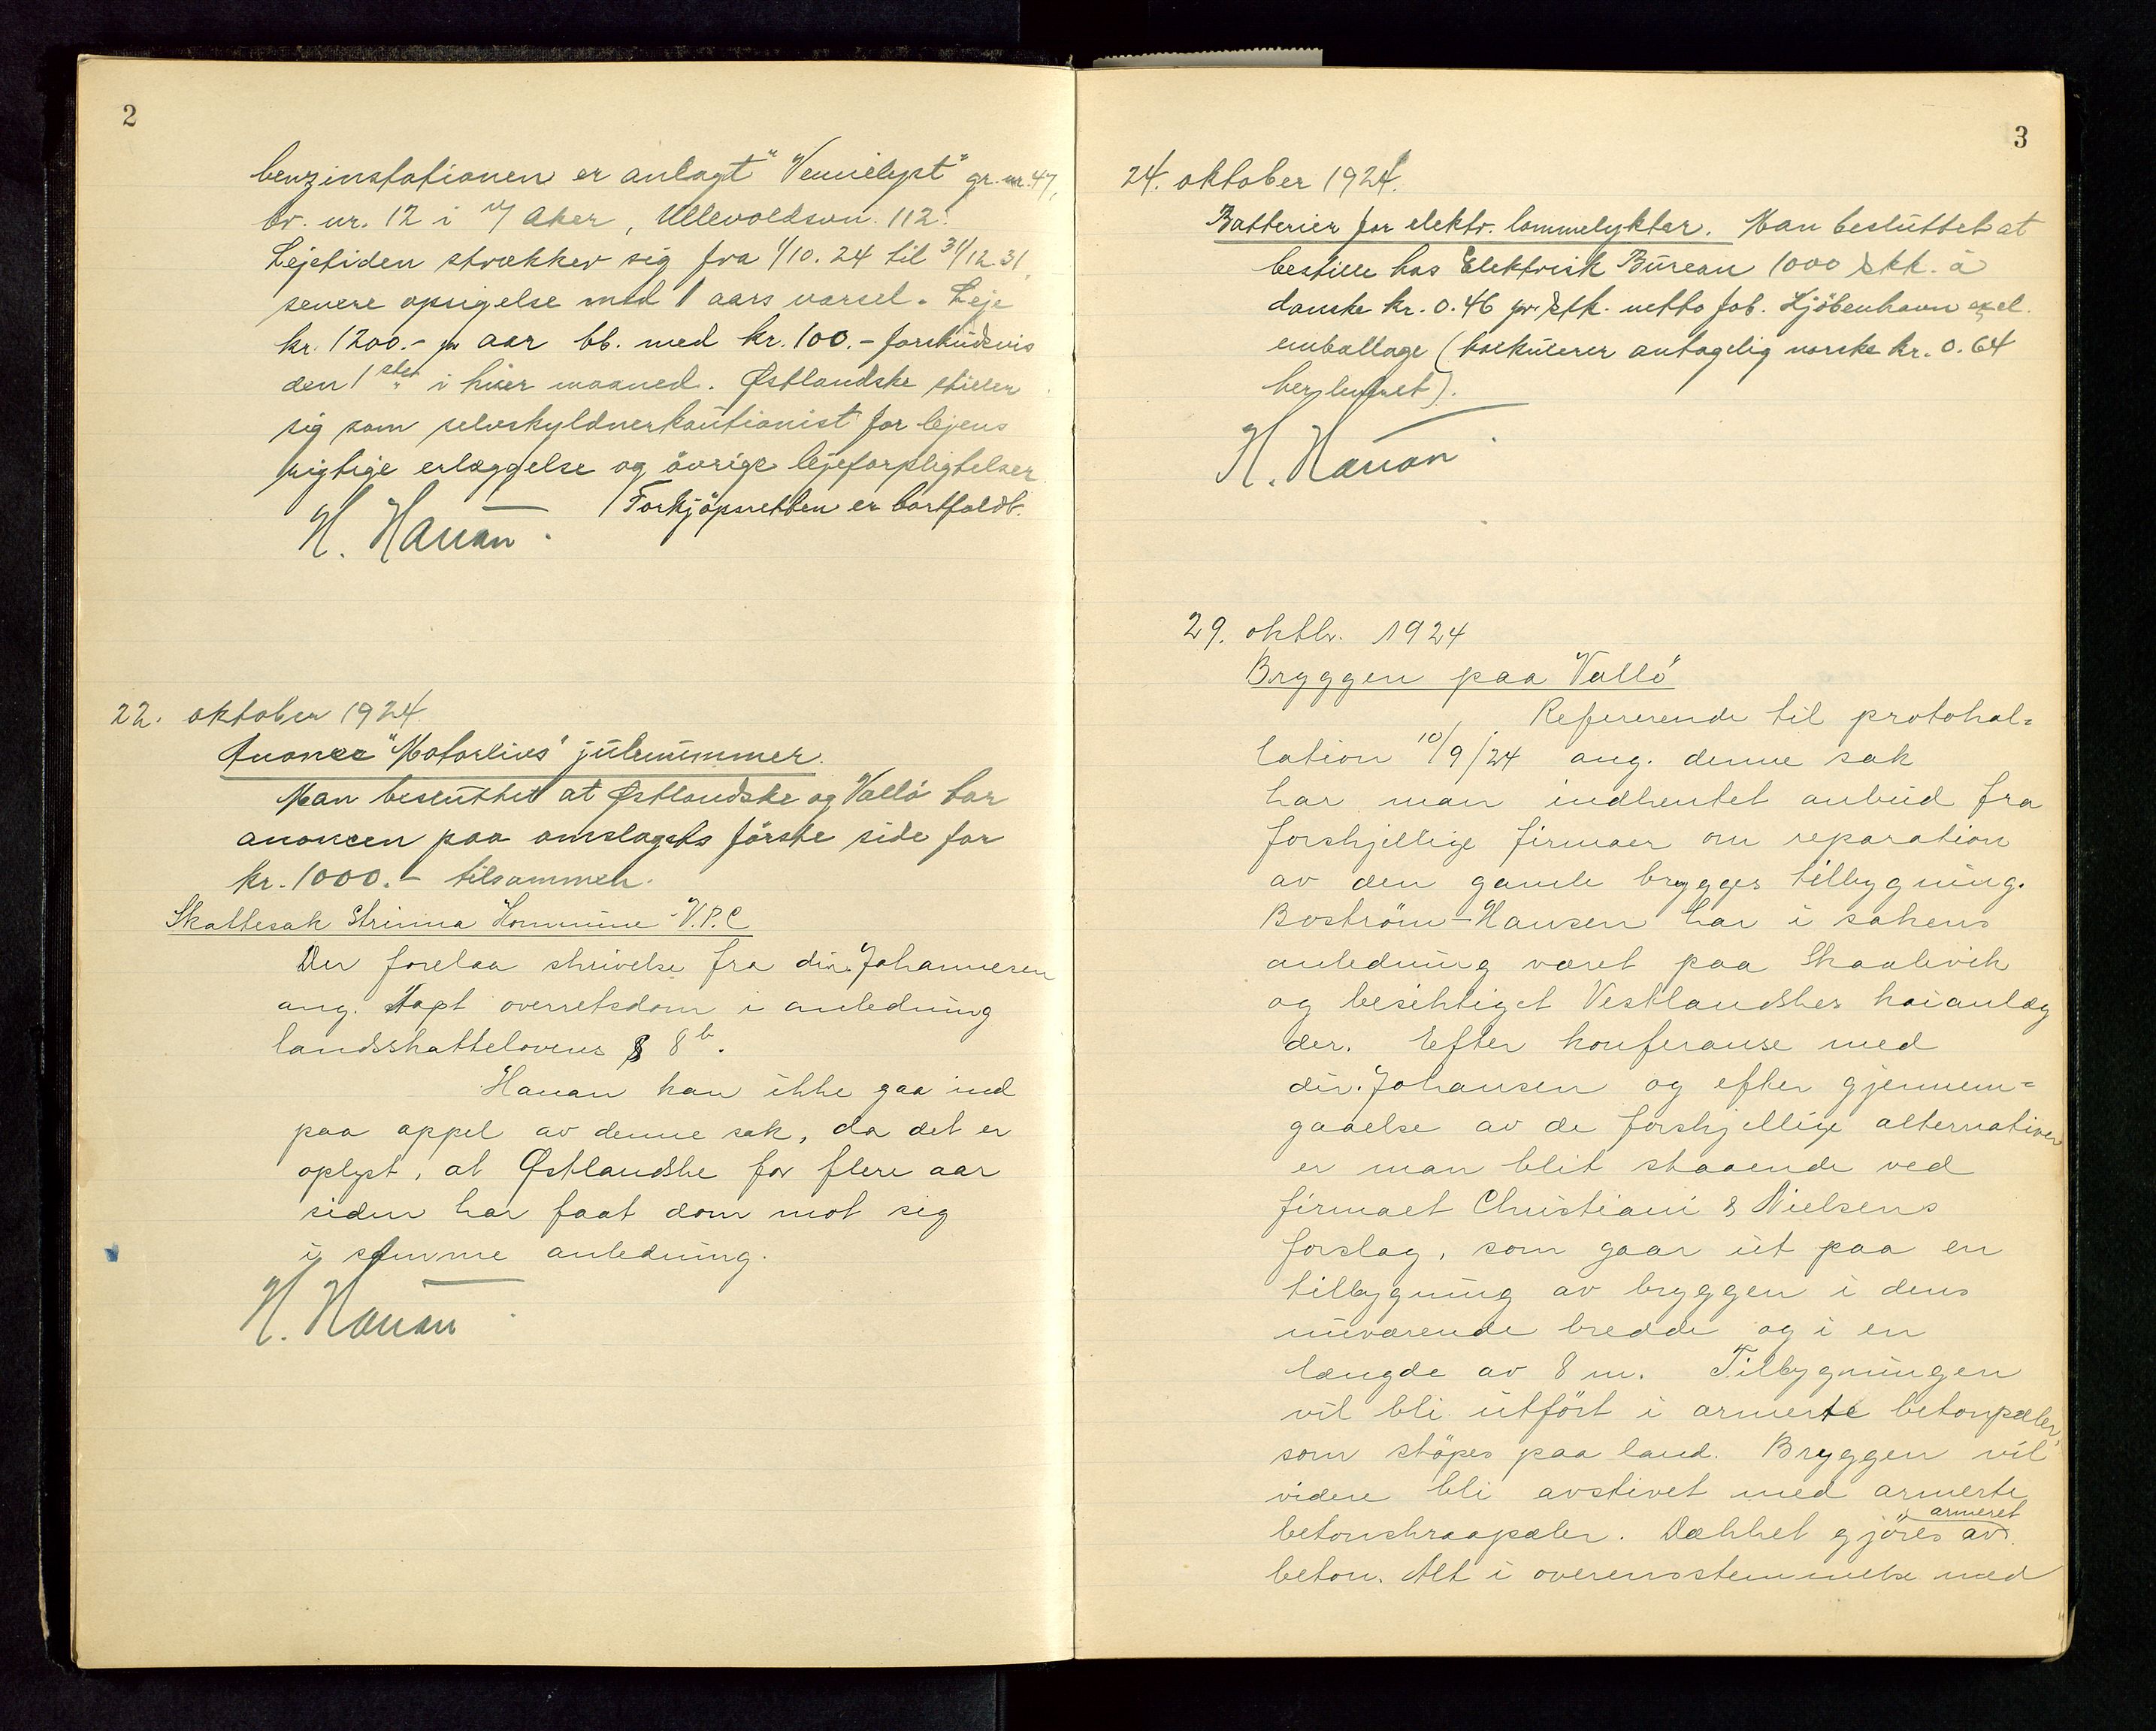 2
benzinstationen er anlagt "Vennelyst" gr. nr. 47,
br. nr. 12 i V/ Aker, Ullevoldsvn. 112.
Lejetiden strækker sig fra 1/10.24 til 31/12 31,
senere opsigelse med 1 aars varsel. Leje
kr. 1200.- pr aar bb. med kr. 100.- forskudsvis
den 1ste i hver maaned. Østlandske stiller
sig som selvskyldnerkautionist for lejens
rigtige erlæggelse og övrige lejeforpligtelser
Forkjöpsretten er bortfaldt.
H. Hauan.
22. oktober 1924.
Anonce "Motorlivs" julenummer.
Man besluttet at Østlandske og Vallö tar
anoncen paa omslagets förste side for
kr. 1000.- tilsammen.
Skattesak Strinna Kommune - V.P.C
Der forelaa skrivelse fra dir. Johannesen
ang. tapt overretsdom i anledning
landsskattelovens § 8b.
Hauan kan ikke gaa ind
paa appel av denne sak, da det er
oplyst, at Østlandske for flere aar
siden har faat dom mot sig
i samme anledning.
H. Hauan
3
24. oktober 1924.
Batterier for elektr. lommelykter. Man besluttet at
bestille hos Elektrisk Bureau 1000 stk. à
danske kr. 0.46 pr. stk. netto fob. Kjöbenhavn excl.
emballage (kalkulerer antagelig norske kr. 0.64
her levert).
H. Hauan
29. oktbr. 1924
Bryggen paa "Vallö"
Refererende til protokol=
lation 10/9/24 ang. denne sak
har man indhentet anbud fra
forskjellige firmaer om reparation
av den gamle brygges tilbygning.
Boström-Hansen har i sakens
anledning været paa Skaalevik
og besiktiget Vestlandskes kaianlæg
der. Efter konferanse med
dir. Johansen og efter gjennem=
gaaelse av de forskjellige alternativer
er man blit staaende ved
firmaet Christiani & Nielsens
forslag, som gaar ut paa en
tilbygning av bryggen i dens
nuværende bredde og i en
længde av 8 m. Tilbygningen
vil bli utfört i armerte betonpæler,
som stöpes paa land. Bryggen vil
videre bli avstivet med armerte
betonskraapæler. Dækket gjöres av armeret
beton. Alt i overensstemmelse med